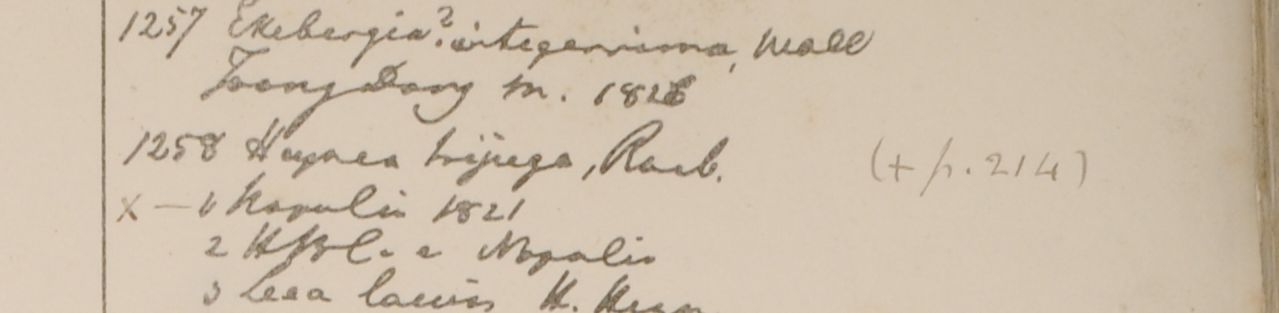 1257 Ekebergia? integerrima, Wall
Toong Dong m. 1826
1258 Heynea trijuga, Roxb. (+ p. 214)
x — 1 Napalia 1821
2 HBC. e Napalia
3 Leea laevis H. Ham